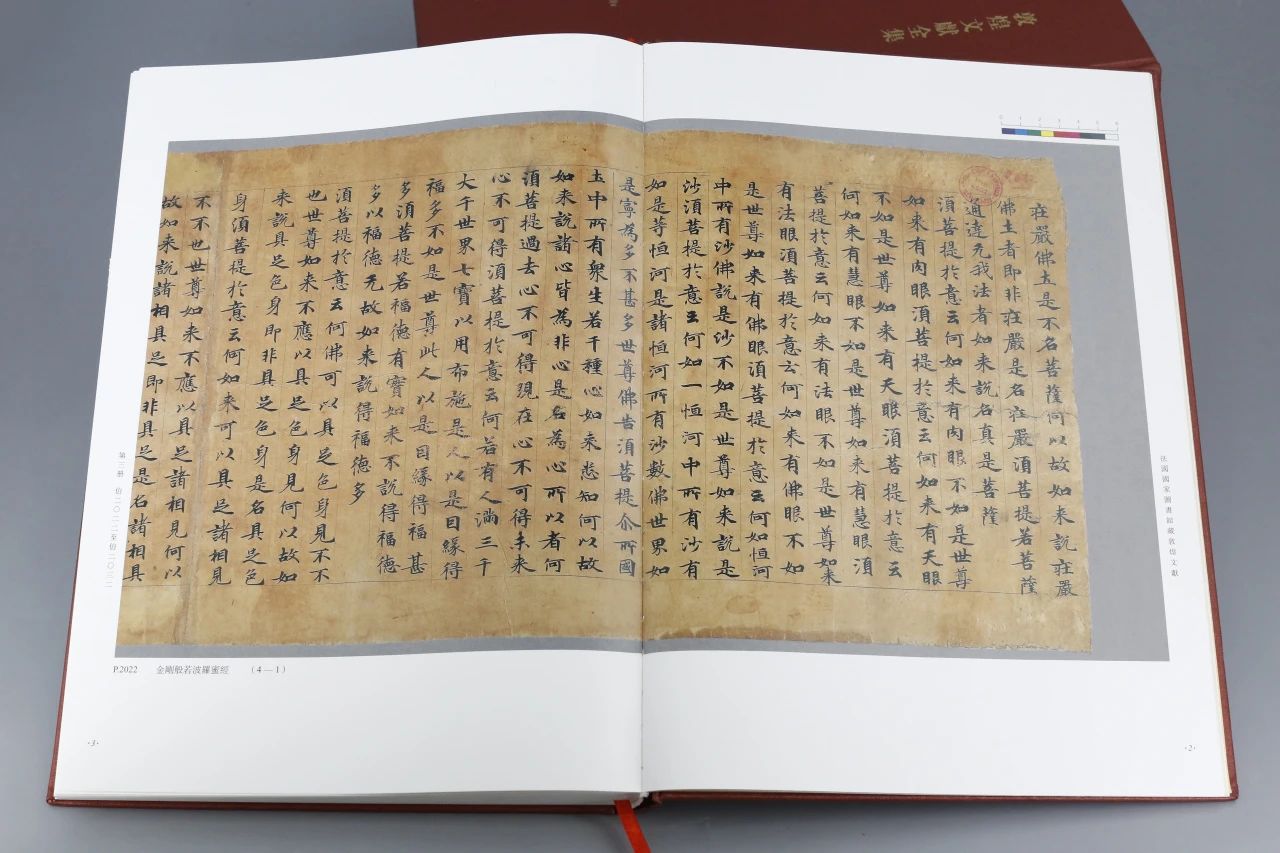 敦煌文獻全集
0 1 2 3 4 5 6
莊嚴佛土是不名菩薩何以故如来說莊嚴
佛土者即非莊嚴是名莊嚴須菩提若菩薩
通達无我法者如来說名真是菩薩
須菩提於意云何如来有肉眼不如是世尊
如来有肉眼須菩提於意云何如来有天眼
不如是世尊如来有天眼須菩提於意云
何如来有慧眼不如是世尊如来有慧眼須
菩提於意云何如来有法眼不如是世尊如来
有法眼須菩提於意云何如来有佛眼不如
是世尊如来有佛眼須菩提於意云何如恒河
中所有沙佛說是沙不如是世尊如来說是
沙須菩提於意云何如一恒河中所有沙有
如是等恒河是諸恒河所有沙數佛世界如
是寧為多不甚多世尊佛告須菩提尒所國
土中所有衆生若干種心如来悉知何以故
如来說諸心皆為非心是名為心所以者何
須菩提過去心不可得現在心不可得未来
心不可得須菩提於意云何若有人滿三千
大千世界七寶以用布施是人以是因緣得
福多不如是世尊此人以是因緣得福甚
多須菩提若福德有寶如来不說得福德
多以福德无故如来說得福德多
須菩提於意云何佛可以具足色身見不不
也世尊如来不應以具足色身見何以故如
来說具足色身即非具足色身是名具足色
身須菩提於意云何如来可以具足諸相見
不不也世尊如来不應以具足諸相見何以
故如来說諸相具足即非具足是名諸相具
法國國家圖書館藏敦煌文獻
第三册 伯二〇二二至伯二〇三二
P.2022 金剛般若波羅蜜經 (4—1)
·2·
·3·